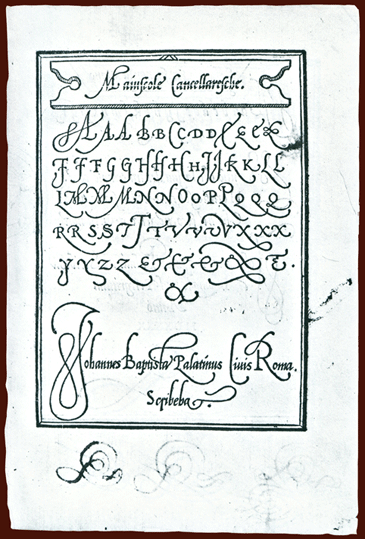 Maiuscole Cancellaresche.
A A A B B C C D D E E E
F F F G G H H H I J K K L L
L M M M N N O O P P Q Q Q
R R S S T T T V V V V X X X
Y Y Z Z & & & & &.
Johannes Baptista Palatinus Civis Roma.
Scribeba